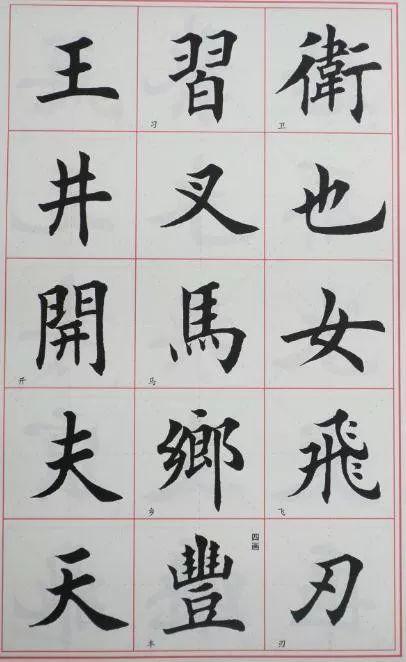 衛
卫
也
女
飛
飞
刃
刃
習
习
叉
馬
马
鄉
乡
四画
豐
丰
王
井
開
开
夫
天